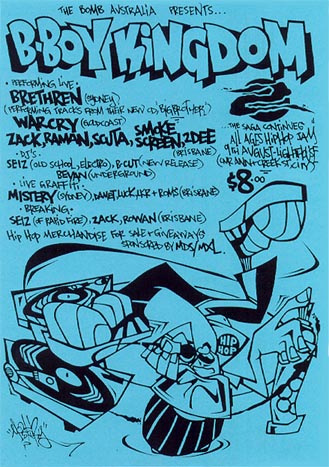 THE BOMB AUSTRALIA PRESENTS...
B-BOY KINGDOM
• PERFORMING LIVE •
BRETHREN (SYDNEY)
(PERFORMING TRACKS FROM THEIR NEW CD,
WARCRY (GOLDCOAST)
ZACK, RAMAN, SCUTA, SMOKE SCREEN, 2DEE
(BRISBANE)
• DJ'S •
SEIZ (OLD SCHOOL, ELECTRO), B-CUT (NEW RELEASE)
BEVAN (UNDERGROUND)
• LIVE GRAFFITI •
MISTERY (SYDNEY), DAMET, LUCK, KR + ROMS (BRISBANE)
• BREAKING •
SEIZ (OF RAPID FIRE), ZACK, ROWAN (BRISBANE)
HIP HOP MERCHANDISE FOR SALE + GIVEAWAYS
SPONSORED BY MDS/MXL.
...THE SAGA CONTINUES
ALL AGES HIPHOP JAM
9TH AUGUST
CNR ANN + CREEK ST, CITY
$8.00
HIP HOP